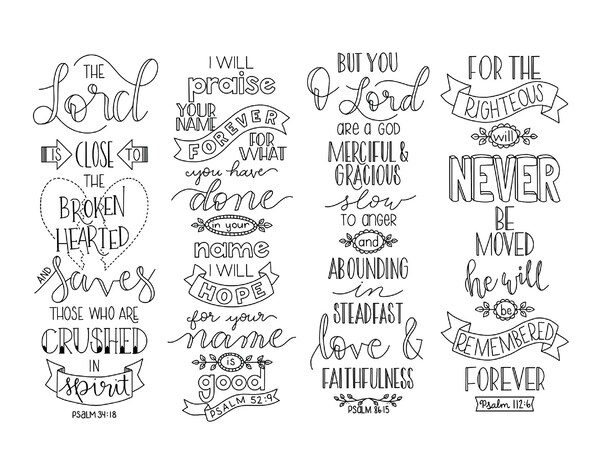 THE
Lord
IS CLOSE TO
THE
BROKEN
HEARTED
AND Saves
THOSE WHO ARE
CRUSHED
IN
spirit
PSALM 34:18
I WILL
praise
YOUR
NAME
FOREVER
FOR
WHAT
you have
done
in your
name
I WILL
HOPE
for your
name
is
good
PSALM 52:9
BUT YOU
O Lord
are a GOD
MERCIFUL &
GRACIOUS
slow
TO ANGER
and
ABOUNDING
in
STEADFAST
love &
FAITHFULNESS
PSALM 86:15
FOR THE
RIGHTEOUS
will
NEVER
BE
MOVED
he will
be
REMEMBERED
FOREVER
Psalm 112:6